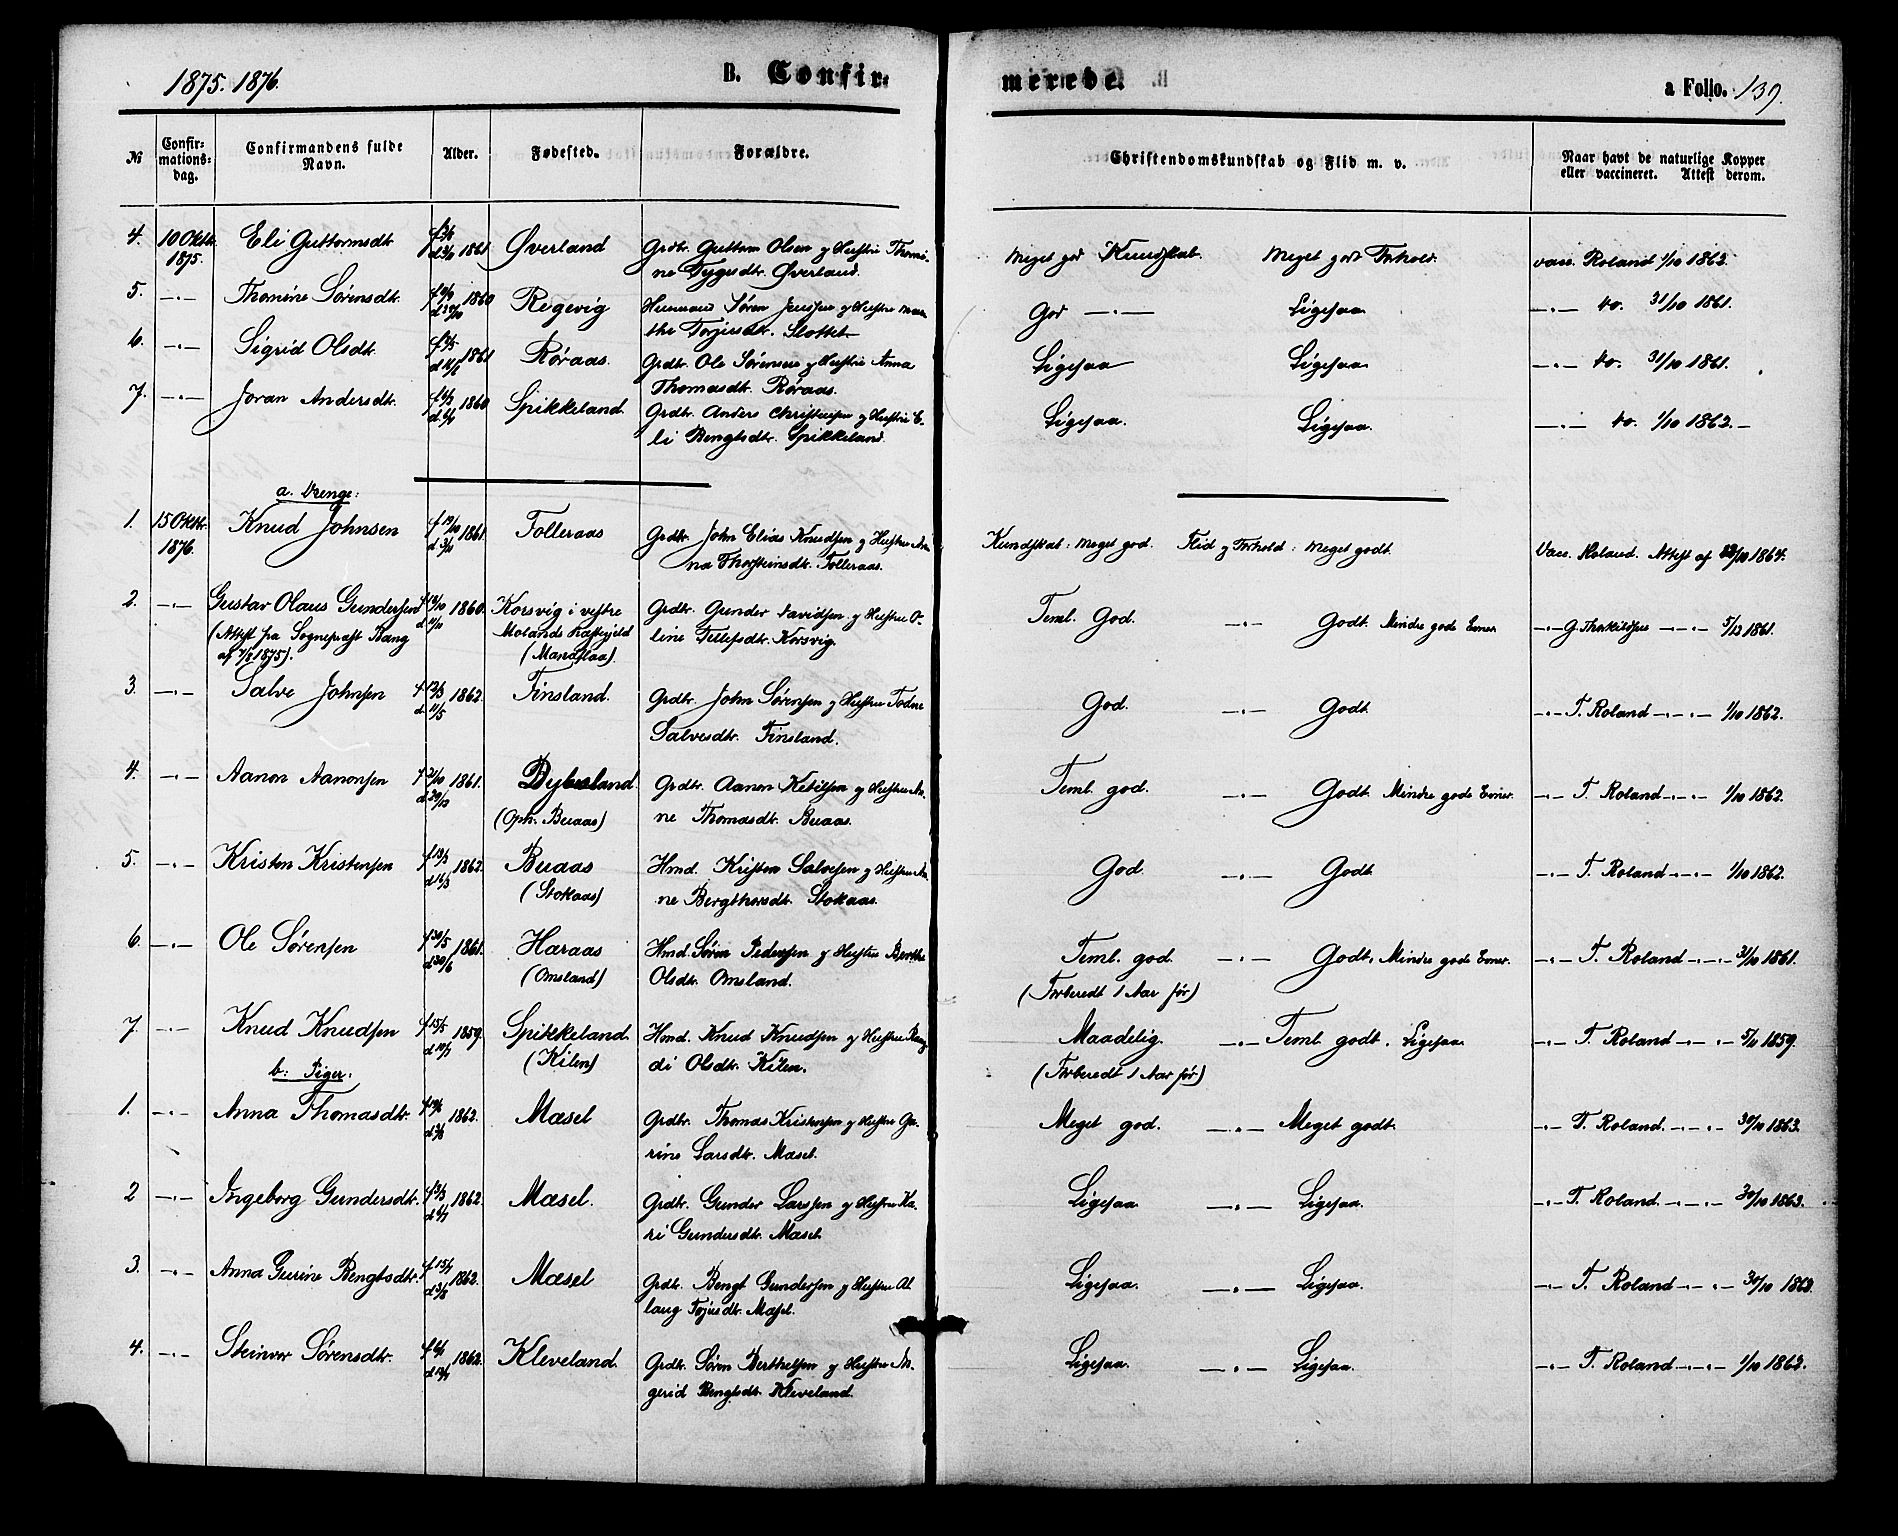 1875. 1876.
B. Confir-
merede.
a Folio. 139.
№
Confir-
mations-
dag.
Confirmandens fulde
Navn.
Alder.
Fødested.
Forældre.
Christendomskundskab og Flid m. v.
Naar havt de naturlige Kopper
eller vaccineret. Attest derom.
4. 10 Oktbr. 1875. Eli Guttormsdtr. 1861 Øverland Grdbr. Guttorm Olsen og Hustru Thomi-
ne Tygesdtr. Øverland. Meget god Kundskab. Meget godt Forhold. vacc. Roland 1/10 1862.
5. -„- Thomine Sørensdtr. 1860 Regevig Huusmand Søren Jensen og Hustru Mar-
the Torjusdtr. Slottet God -„- Ligesaa -„- do. 31/10 1861.
6. -„- Sigrid Olsdtr. 1861 Røraas. Grdbr. Ole Sørensen og Hustru Anna
Thomasdtr. Røraas. Ligesaa Ligesaa -„- do. 31/10 1861.
7. -„- Joran Andersdtr. 1860 Spikkeland. Grdbr. Anders Christensen og Hustru E-
li Bengtsdtr. Spikkeland. Ligesaa. Ligesaa. -„- do. 1/10 1862.-
a. Drenge:
1. 15 Oktbr. 1876. Knud Johnsen f 19/10 d 3/11 1861. Tolleraas Grdbr. John Elias Knudsen og Hustru An-
na Thorsteinsdtr. Tolleraas. Kundskab: Meget god. Flid og Forhold: Meget godt. Vacc. Roland. Attest af 1864.
2. -„- Gustav Olaus Gundersen 1860. Korsvig i vestre Grdbr. Gunder Davidsen og Hustru O-
(Attest fra Sogneprest Bang Molands Præstegjeld line Tellefsdtr. Korsvig. Teml. God. -„- Godt. Mindre gode Evner. -„- G. Thorkildsen -„- 5/12 1861.
af 1875). (Mandflaa).
3. -„- Salve Johnsen f 12/3 d. 11/5 1862. Finsland. Grdbr. John Sørensen og Hustru Todne
Salvesdtr. Finsland. God. -„- Godt -„- T. Roland -„- 1/10 1862.
4. -„- Aanon Aanonsen f 21/10 d 29/12 1861. Dybesland. Grdbr. Aanon Ketilsen og Hustru An-
(Oph. Buaas) ne Thomasdtr. Buaas. Teml. god. -„- Godt. Mindre gode Evner. -„- T. Roland -„- 1/10 1862.
5. -„- Kristen Kristensen 1862. Buaas Hmd. Kristen Salvesen og Hustru An-
(Stokaas) ne Bergthorsdtr. Stokaas. God. -„- Godt -„- T. Roland -„- 1/10 1862.
6. -„- Ole Sørensen f 30/5 d 30/6 1861. Haraas Hmd. Søren Pedersen og Hustru Berthe
(Omsland) Olsdtr. Omsland. Teml. god -„- Godt, Mindre gode Evner. -„- T. Roland -„- 31/10 1861.
(Forberedt 1 Aar før)
7. -„- Knud Knudsen f 15/5 d 10/7 1859. Spikkeland. Hmd. Knud Knudsen og Hustru Ran-
(Kilen) di Olsdtr. Kilen. Maadelig. -„- Teml. godt. Ligesaa -„- T. Roland -„- 1859.
(Forberedt 1 Aar før)
b: Piger:
1. -„- Anna Thomasdtr. 1862. Mæsel Grdbr. Thomas Kristensen og Hustru Gu-
rine Larsdtr. Mæsel. Meget god. -„- Meget godt. -„- T. Roland. -„- 30/10 1863.
2 -„- Ingeborg Gundersdtr. 1862. Mæsel. Grdbr. Gunder Larssen og Hustru Ka-
ri Gundersdtr. Mæsel. Ligesaa -„- Ligesaa. -„- T. Roland. -„- 30/10 1863.
3. -„- Anna Gurine Bengtsdtr. 1862. Mæsel Grdbr. Bengt Gundersen og Hustru As-
laug Tojusdtr. Mæsel. Ligesaa. -„- Ligesaa. -„- T. Roland -„- 30/10 1863.
4. -„- Steinvor Sørensdtr. 1862. Kleveland. Grdbr. Søren Berthelsen og Hustru In-
gerid Bengtsdtr. Kleveland. Ligesaa. -„- Ligesaa. -„- T. Roland -„- 1/10 1862.